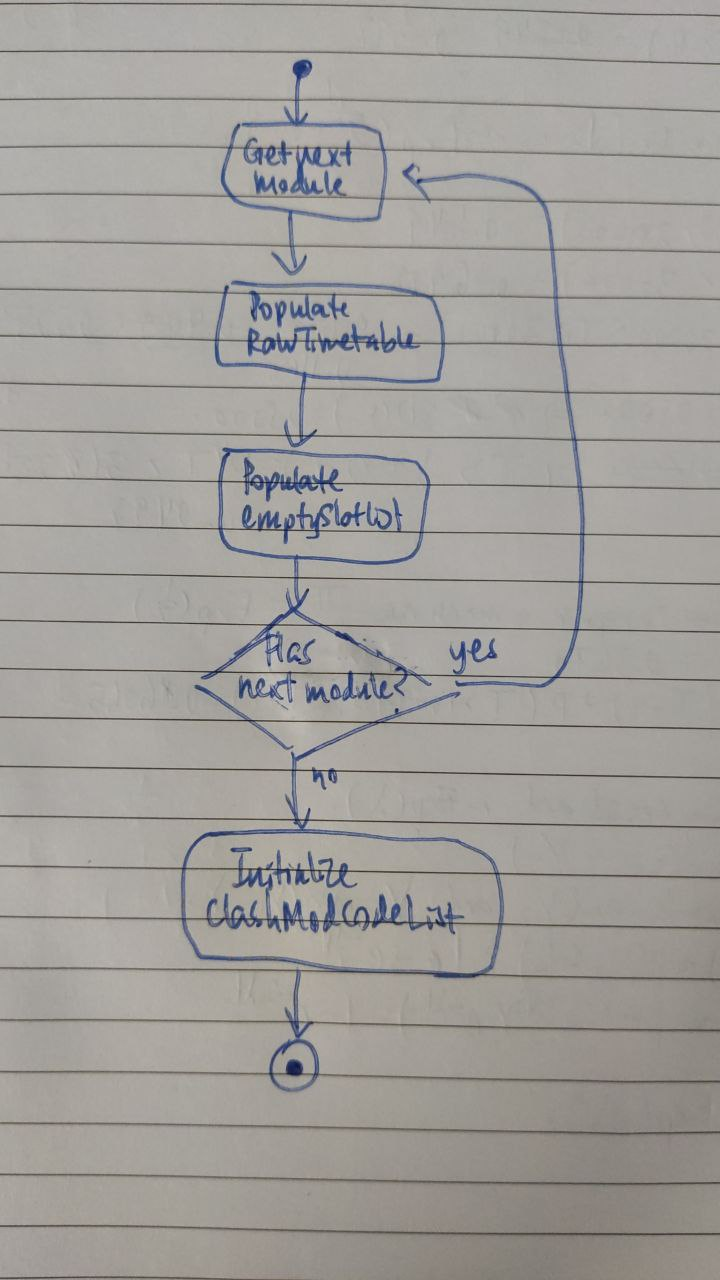 Get next
module
Populate
RawTimetable
Populate
emptySlotList
Has
next module?
yes
no
Initialize
clashModCodeList